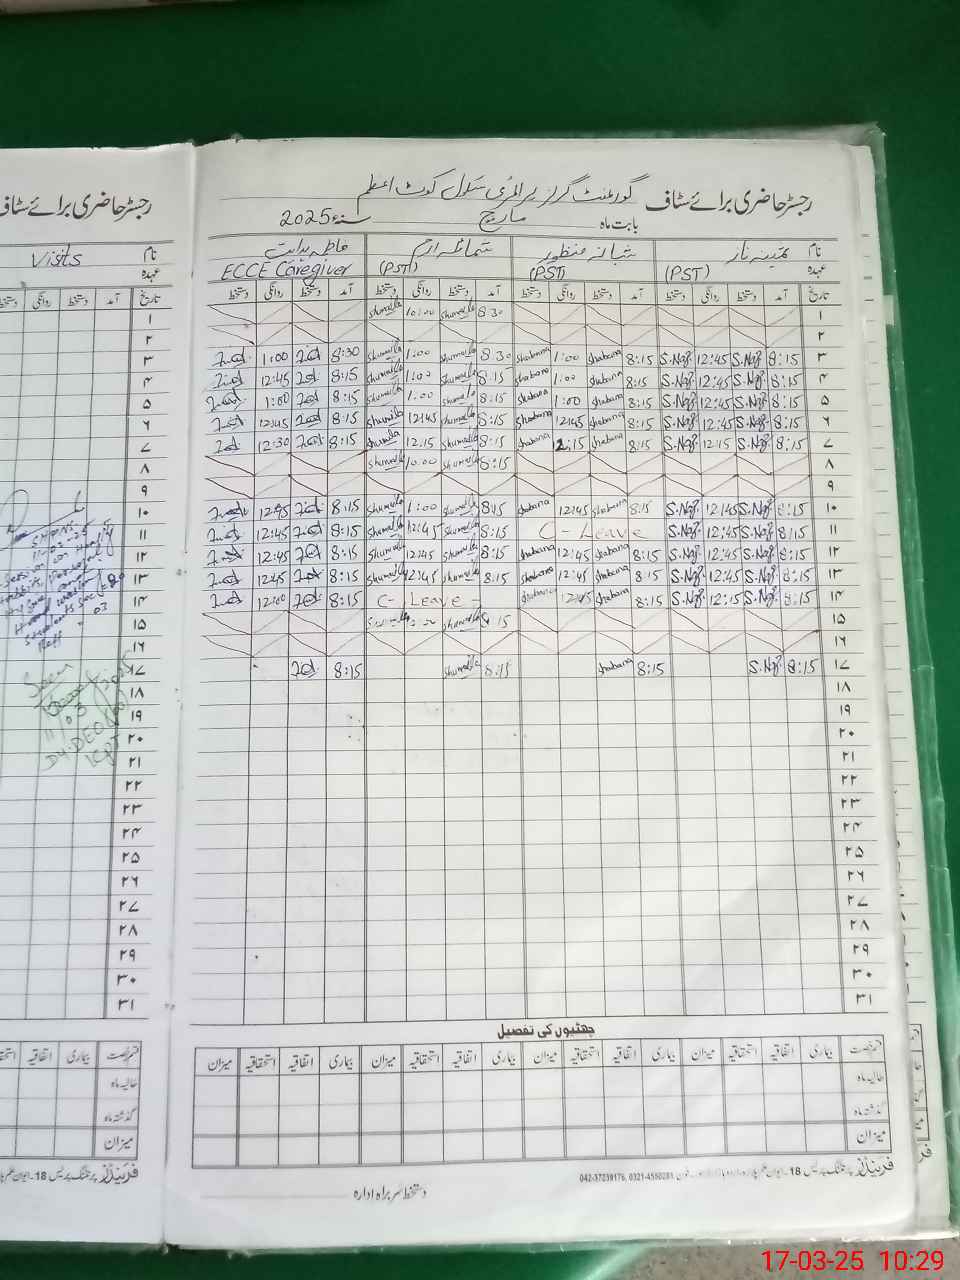 رجسٹر حاضری برائے سٹاف گورنمنٹ گرلز پرائمری سکول کوٹ اعظم
بابت ماہ مارچ سنہ 2025
نام ثمینہ ناز شبانہ منظور شمائلہ ارم فاطمہ ہدایت
عہدہ (PST) (PST) (PST) ECCE Caregiver
تاریخ آمد دستخط روانگی دستخط آمد دستخط روانگی دستخط آمد دستخط روانگی دستخط آمد دستخط روانگی دستخط
۱ 8:30 Shumaila 10:00 Shumaila
۲
۳ 8:15 S.Naz 12:45 S.Naz 8:15 Shabana 1:00 Shabana 8:30 Shumaila 1:00 Shumaila 8:30 1:00
۴ 8:15 S.Naz 12:45 S.Naz 8:15 Shabana 1:00 Shabana 8:15 Shumaila 1:00 Shumaila 8:15 12:45
۵ 8:15 S.Naz 12:45 S.Naz 8:15 Shabana 1:00 Shabana 8:15 Shumaila 1:00 Shumaila 8:15 1:00
۶ 8:15 S.Naz 12:45 S.Naz 8:15 Shabana 12:45 Shabana 8:15 Shumaila 12:45 Shumaila 8:15 12:45
۷ 8:15 S.Naz 12:15 S.Naz 8:15 Shabana 2:15 Shabana 8:15 Shumaila 12:15 Shumaila 8:15 12:30
۸ 8:15 Shumaila 10:00 Shumaila
۹
۱۰ 8:15 S.Naz 12:45 S.Naz 8:15 Shabana 12:45 Shabana 8:15 Shumaila 1:00 Shumaila 8:15 12:45
۱۱ 8:15 S.Naz 12:45 S.Naz C - Leave 8:15 Shumaila 12:45 Shumaila 8:15 12:45
۱۲ 8:15 S.Naz 12:45 S.Naz 8:15 Shabana 12:45 Shabana 8:15 Shumaila 12:45 Shumaila 8:15 12:45
۱۳ 8:15 S.Naz 12:45 S.Naz 8:15 Shabana 12:45 Shabana 8:15 Shumaila 12:45 Shumaila 8:15 12:45
۱۴ 8:15 S.Naz 12:15 S.Naz 8:15 Shabana 12:45 Shabana C - Leave - 8:15 12:00
۱۵ 8:15 Shumaila
۱۶
۱۷ 8:15 S.Naz 8:15 Shabana 8:15 Shumaila 8:15
۱۸
۱۹
۲۰
۲۱
۲۲
۲۳
۲۴
۲۵
۲۶
۲۷
۲۸
۲۹
۳۰
۳۱
چھٹیوں کی تفصیل
قسم رخصت بیماری اتفاقیہ استحقاقیہ میزان بیماری اتفاقیہ استحقاقیہ میزان بیماری اتفاقیہ استحقاقیہ میزان بیماری اتفاقیہ استحقاقیہ میزان
حالیہ ماہ
گذشتہ ماہ
میزان
فرینڈز پرنٹنگ پریس 18۔ایوان علم 042-37239176, 0321-4550281
دستخط سربراہ ادارہ
رجسٹر حاضری برائے سٹاف
نام Visits
عہدہ
تاریخ آمد دستخط روانگی دستخط
۱
۲
۳
۴
۵
۶
۷
۸
۹
۱۰
۱۱
۱۲
۱۳
۱۴
۱۵
۱۶
۱۷
۱۸
۱۹
۲۰
۲۱
۲۲
۲۳
۲۴
۲۵
۲۶
۲۷
۲۸
۲۹
۳۰
۳۱
Session on
Seen
03
Dy.DEO
قسم رخصت بیماری اتفاقیہ
حالیہ ماہ
گذشتہ ماہ
میزان
فرینڈز پرنٹنگ پریس 18۔ایوان علم
17-03-25 10:29